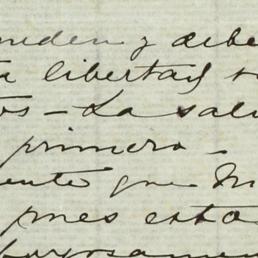 pueden y debe
a libertad
os - La salu
primero -
ente que
pues esta